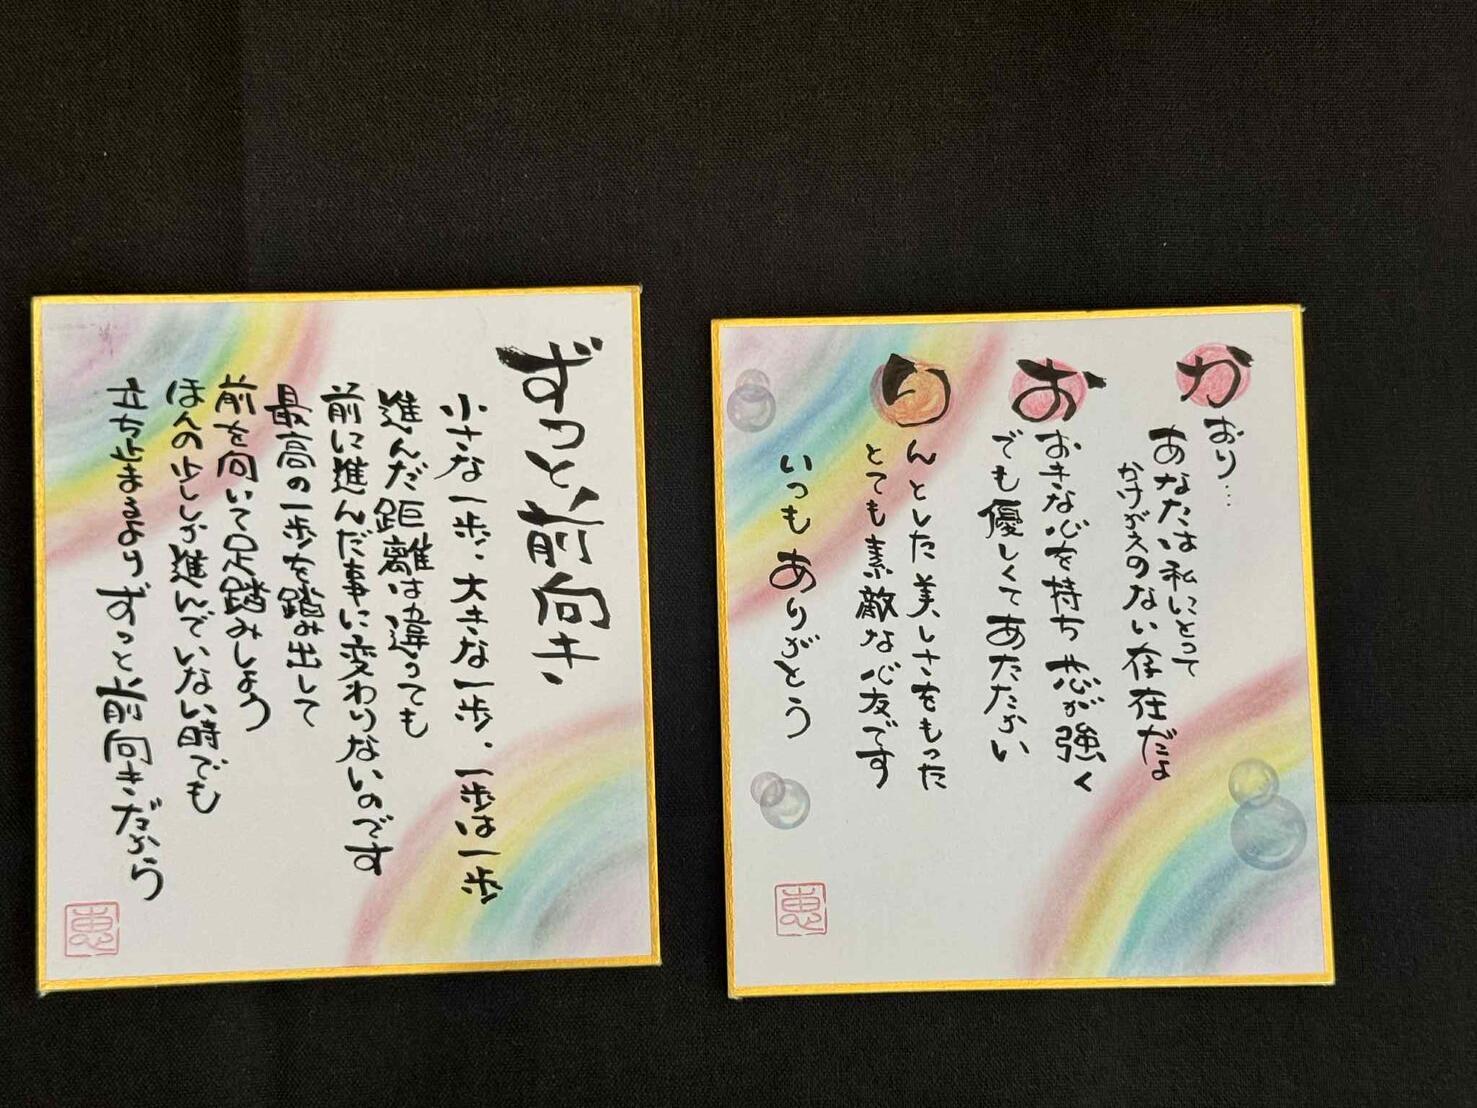 ずっと前向き
小さな一歩、大きな一歩、一歩は一歩
進んだ距離は違っても
前に進んだ事に変わりないのです
最高の一歩を踏み出して
前を向いて足踏みしよう
ほんの少ししか進んでいない時でも
立ち止まるよりずっと前向きだから
恵
かおり…
あなたは私にとって
かけがえのない存在だよ
おおきな心を持ち 芯が強く
でも優しくてあたたかい
りんとした美しさをもった
とても素敵な心友です
いつもありがとう
恵